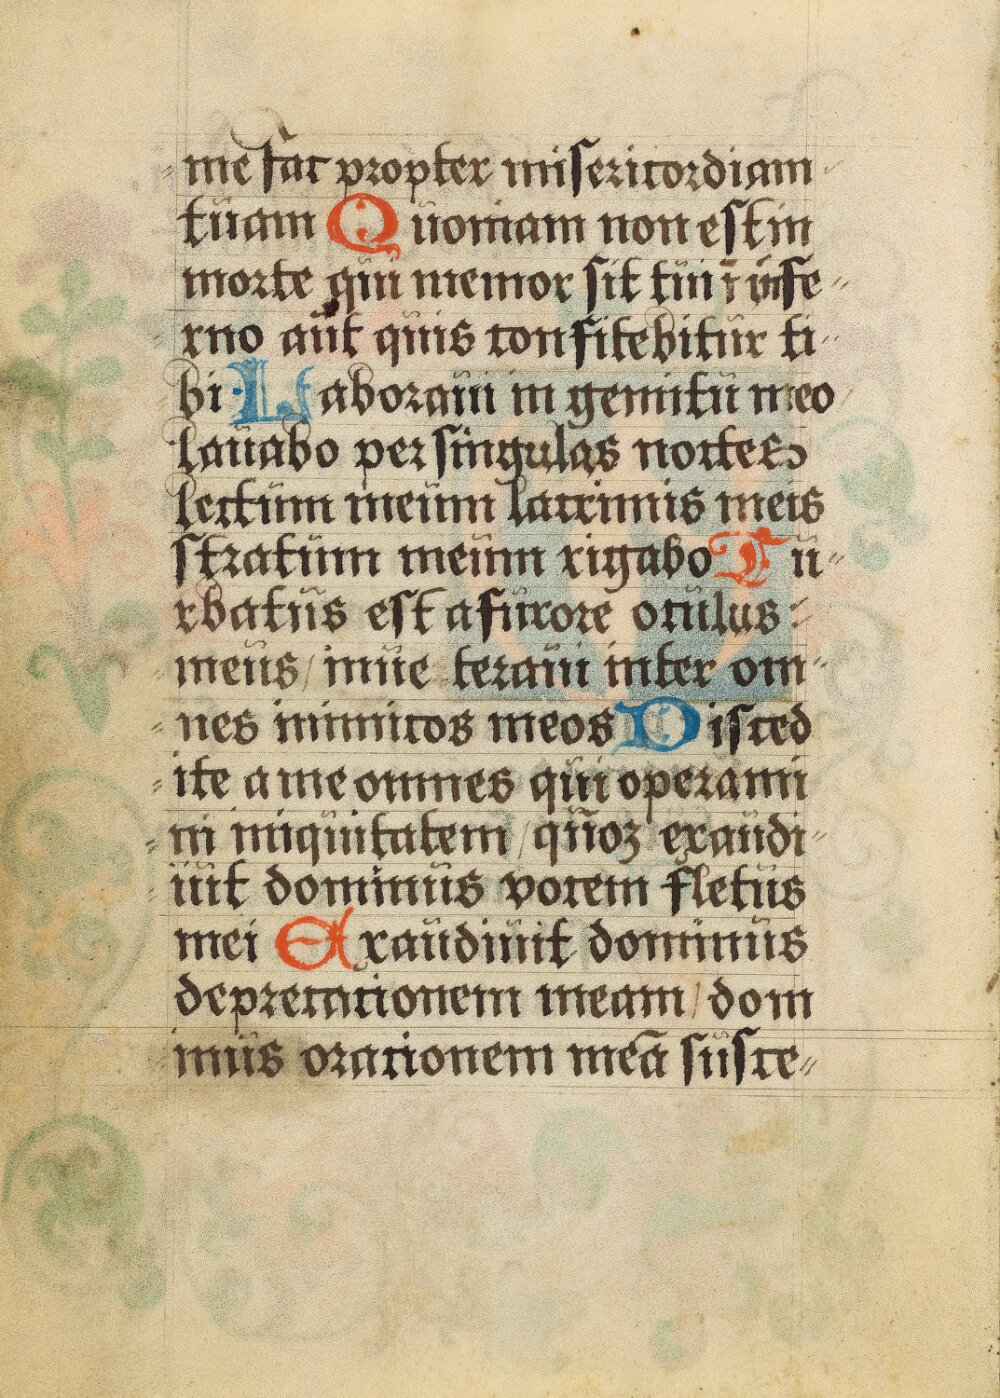 me fac propter misericordiam
tuam Quoniam non est in
morte qui memor sit tui ī infe=
rno aut quis confitebitur ti=
bi Laboraui in gemitu meo
lauabo per singulas noctes
lectum meum lacrimis meis
stratum meum rigabo Tu=
rbatus est a furore oculus
meus / inue teraui inter om=
nes inimicos meos Disced
ite a me omnes qui operami
ni iniquitatem / quoꝫ exaudi=
uit dominus vocem fletus
mei Exaudiuit dominus
deprecationem meam / dom
inus orationem meā susce=